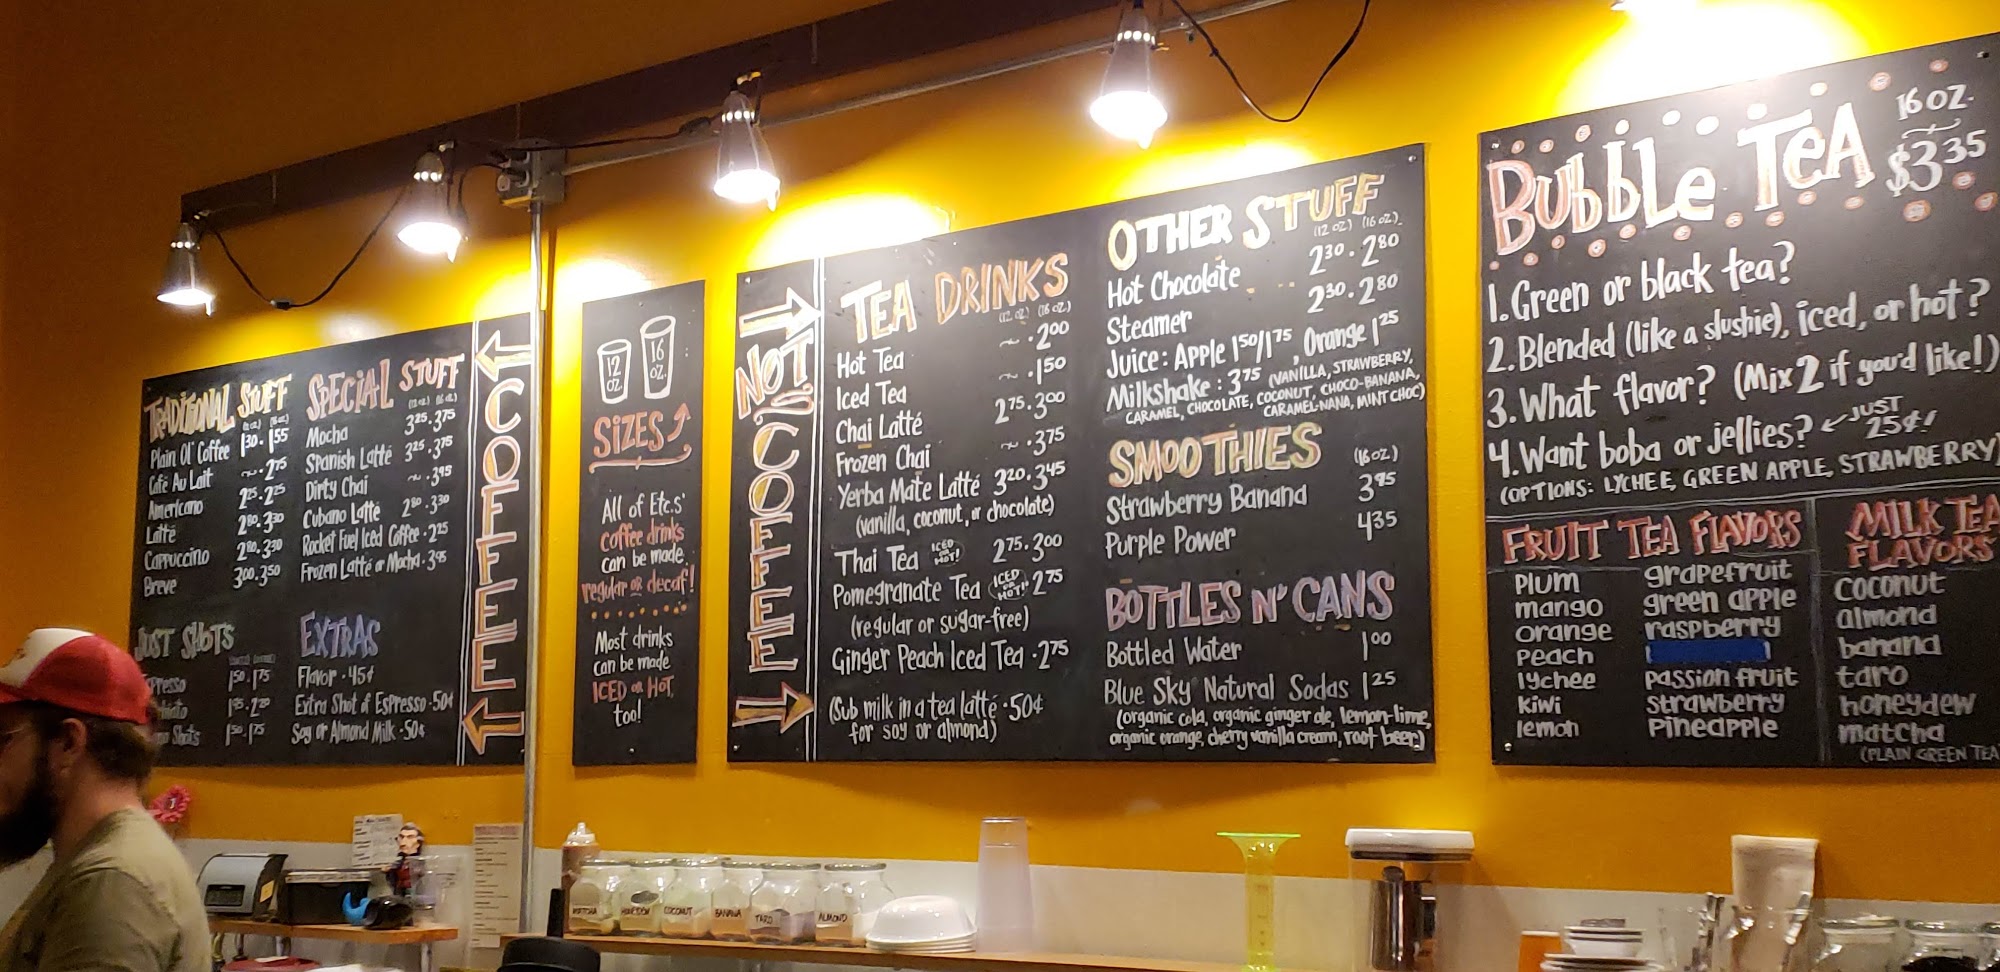 TRADITIONAL STUFF
(12 oz.) (16 oz.)
Plain Ol' Coffee 1.30 · 1.55
Café Au Lait ~ · 2.75
Americano 2.25 · 2.25
Latté 2.80 · 3.30
Cappuccino 2.80 · 3.30
Breve 3.00 · 3.50
JUST SHOTS
1.50 · 1.75
1.50 · 1.75
SPECIAL STUFF
(12 oz.) (16 oz.)
Mocha 3.25 · 3.75
Spanish Latté 3.25 · 3.75
Dirty Chai ~ · 3.95
Cubano Latte 2.80 · 3.30
Rocket Fuel Iced Coffee · 2.25
Frozen Latté or Mocha · 3.95
EXTRAS
Flavor · 45¢
Extra Shot of Espresso · 50¢
Soy or Almond Milk · 50¢
COFFEE
12 oz.
16 oz.
SIZES
All of Etc.s'
coffee drinks
can be made
regular or decaf!
Most drinks
can be made
ICED or HOT,
too!
NOT COFFEE
TEA DRINKS
(12 oz.) (16 oz.)
Hot Tea ~ · 2.00
Iced Tea ~ · 1.50
Chai Latté 2.75 · 3.00
Frozen Chai ~ · 3.75
Yerba Mate Latté 3.20 · 3.45
(vanilla, coconut, or chocolate)
Thai Tea ICED or HOT! 2.75 · 3.00
Pomegranate Tea ICED or HOT! · 2.75
(regular or sugar-free)
Ginger Peach Iced Tea · 2.75
(Sub milk in a tea latté · 50¢
for soy or almond)
OTHER STUFF
(12 oz.) (16 oz.)
Hot Chocolate 2.30 · 2.80
Steamer 2.30 · 2.80
Juice: Apple 1.50/1.75, Orange 1.25
Milkshake: 3.75 (VANILLA, STRAWBERRY,
CARAMEL, CHOCOLATE, COCONUT, CHOCO-BANANA,
CARAMEL-NANA, MINT CHOC)
SMOOTHIES
(16 oz.)
Strawberry Banana 3.95
Purple Power 4.35
BOTTLES N' CANS
Bottled Water 1.00
Blue Sky Natural Sodas 1.25
(organic cola, organic ginger ale, lemon-lime,
organic orange, cherry vanilla cream, root beer)
BUBBLE TEA
16 oz.
$3.35
1. Green or black tea?
2. Blended (like a slushie), iced, or hot?
3. What flavor? (Mix 2 if you'd like!)
4. Want boba or jellies? JUST 25¢!
(OPTIONS: LYCHEE, GREEN APPLE, STRAWBERRY)
FRUIT TEA FLAVORS
plum
mango
orange
peach
lychee
kiwi
lemon
grapefruit
green apple
raspberry
passion fruit
strawberry
pineapple
MILK TEA
FLAVORS
coconut
almond
banana
taro
honeydew
matcha
(PLAIN GREEN TEA
MATCHA
HONEYDEW
COCONUT
BANANA
TARO
ALMOND